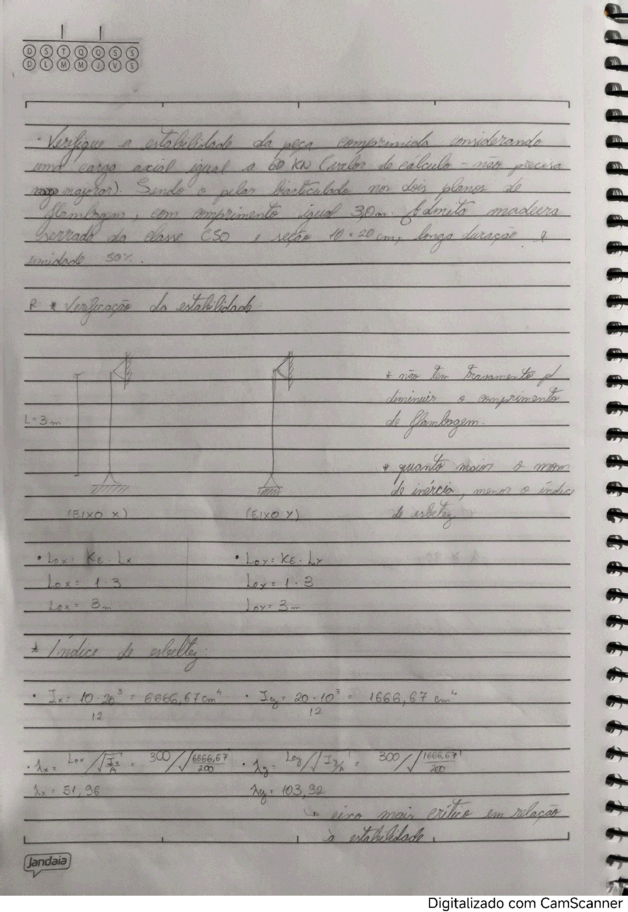 D S T Q Q S S
D L M M J V S
• Verifique a estabilidade da peça comprimida considerando
uma carga axial igual a 60 KN (valor de cálculo - não precisa
majorar). Sendo o pilar biarticulado nos dois planos de
flambagem, com comprimento igual 3,0m. Admita madeira
serrada da classe C50 e seção 10 x 20 cm, longa duração e
umidade 50%.
R * Verificação da estabilidade
* não tem travamento p/
diminuir o comprimento
de flambagem.
L = 3m
* quanto maior o mom
de inércia, menor o índice
de esbeltez
(EIXO X) (EIXO Y)
• Lox = KE . Lx • Loy = KE . Ly
Lox = 1 . 3 Loy = 1 . 3
Lox = 3m Loy = 3m
* Índice de esbeltez:
• Ix = 10 . 20³ = 6666,67 cm⁴ • Iy = 20 . 10³ = 1666,67 cm⁴
12 12
• λx = Lox / √Ix/A = 300 / √6666,67/200 • λy = Loy / √Iy/A = 300 / √1666,67/200
λx = 51,96 λy = 103,92
↳ eixo mais crítico em relação
à estabilidade.
Jandaia
Digitalizado com CamScanner